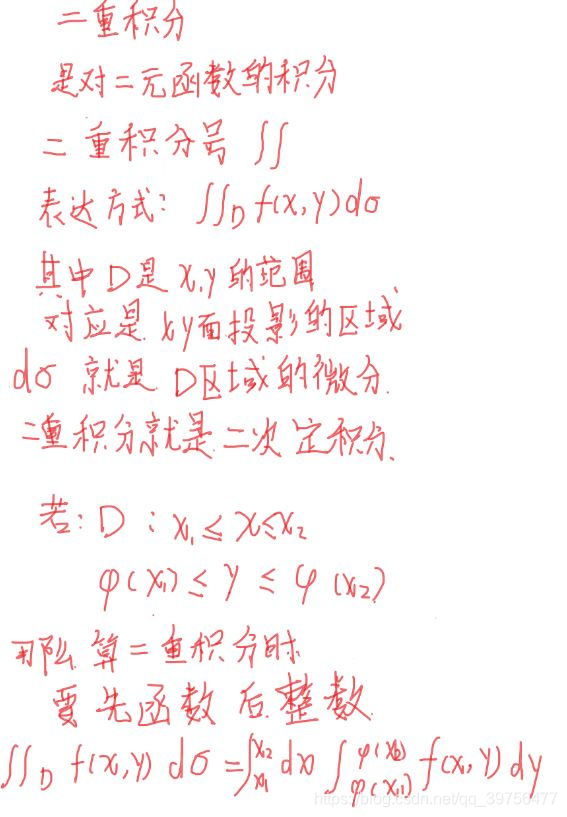 二重积分
是对二元函数的积分
二重积分号 ∬
表达方式: ∬_D f(x,y)dσ
其中 D是 x,y 的范围
对应是 xy面投影的区域
dσ 就是 D区域的微分.
二重积分就是二次定积分.
若: D : x₁ ≤ x ≤ x₂
φ(x₁) ≤ y ≤ φ(x₂)
那么算二重积分时
要先函数后整数
∬_D f(x,y) dσ = ∫_{x₁}^{x₂} dx ∫_{φ(x₁)}^{φ(x₂)} f(x,y) dy
https://blog.csdn.net/qq_39756477